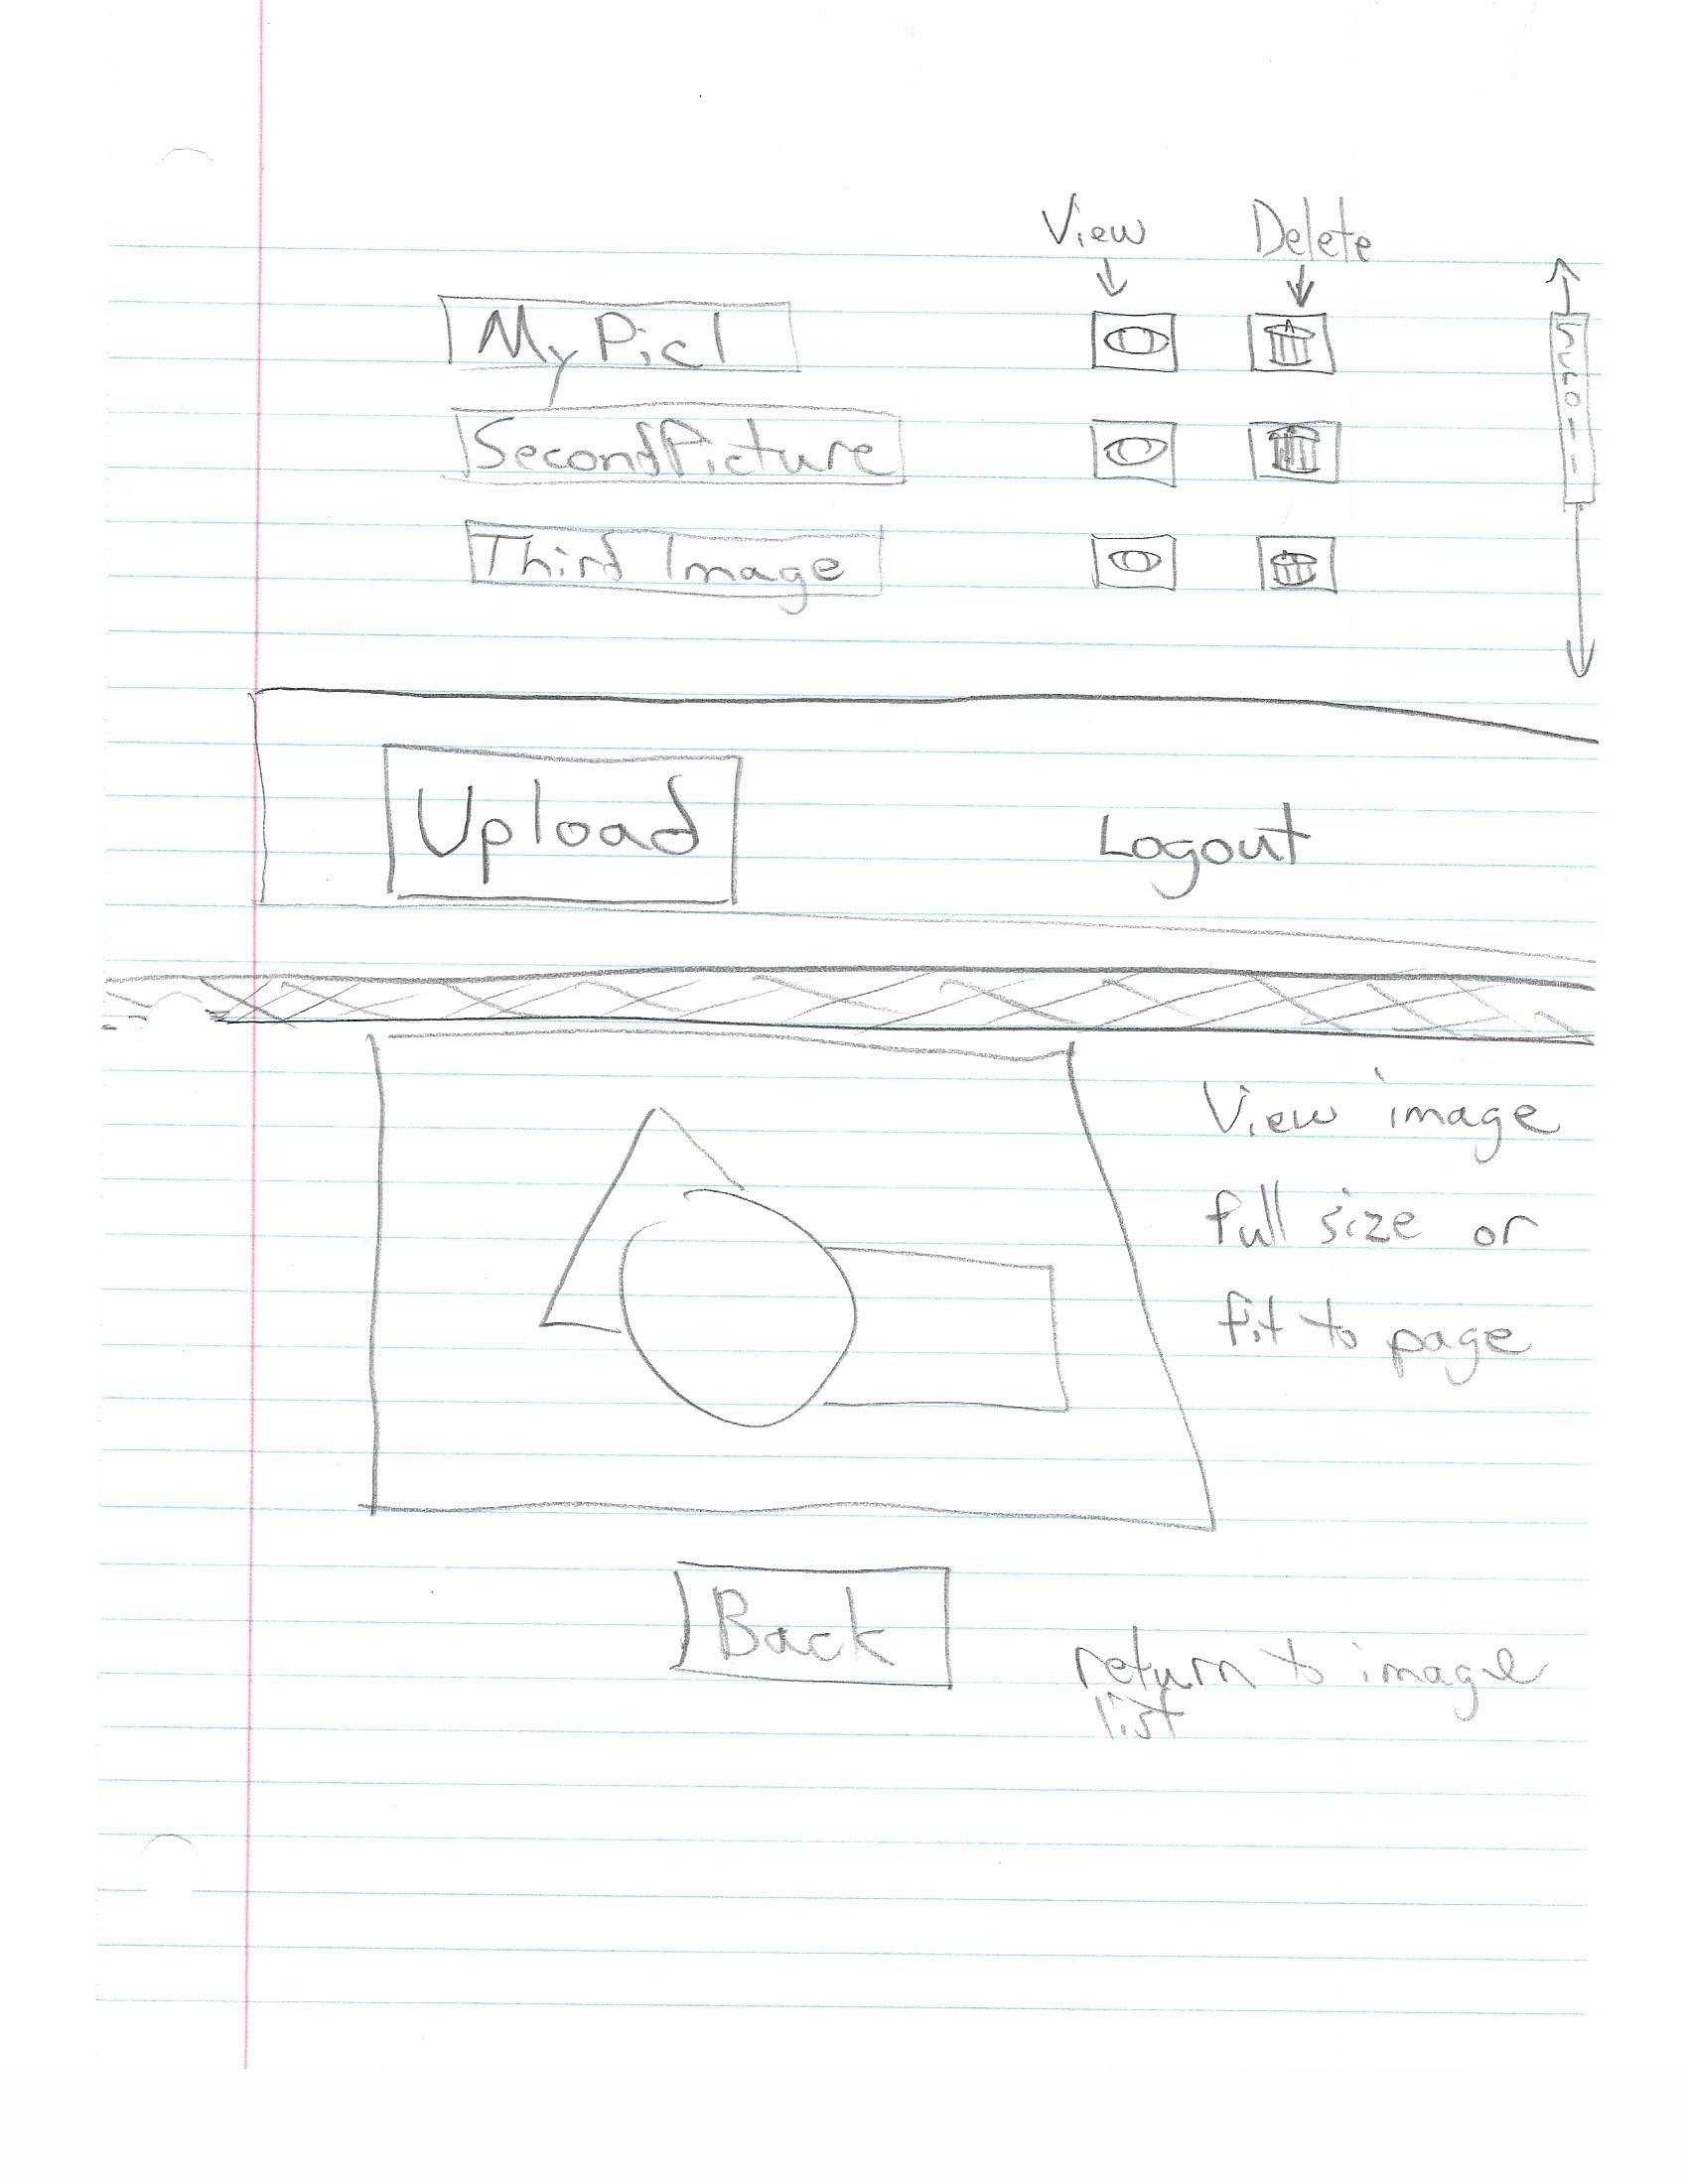 View Delete
MyPic1
Scroll
SecondPicture
Third Image
Upload Logout
View image
full size or
fit to page
Back
return to image
list